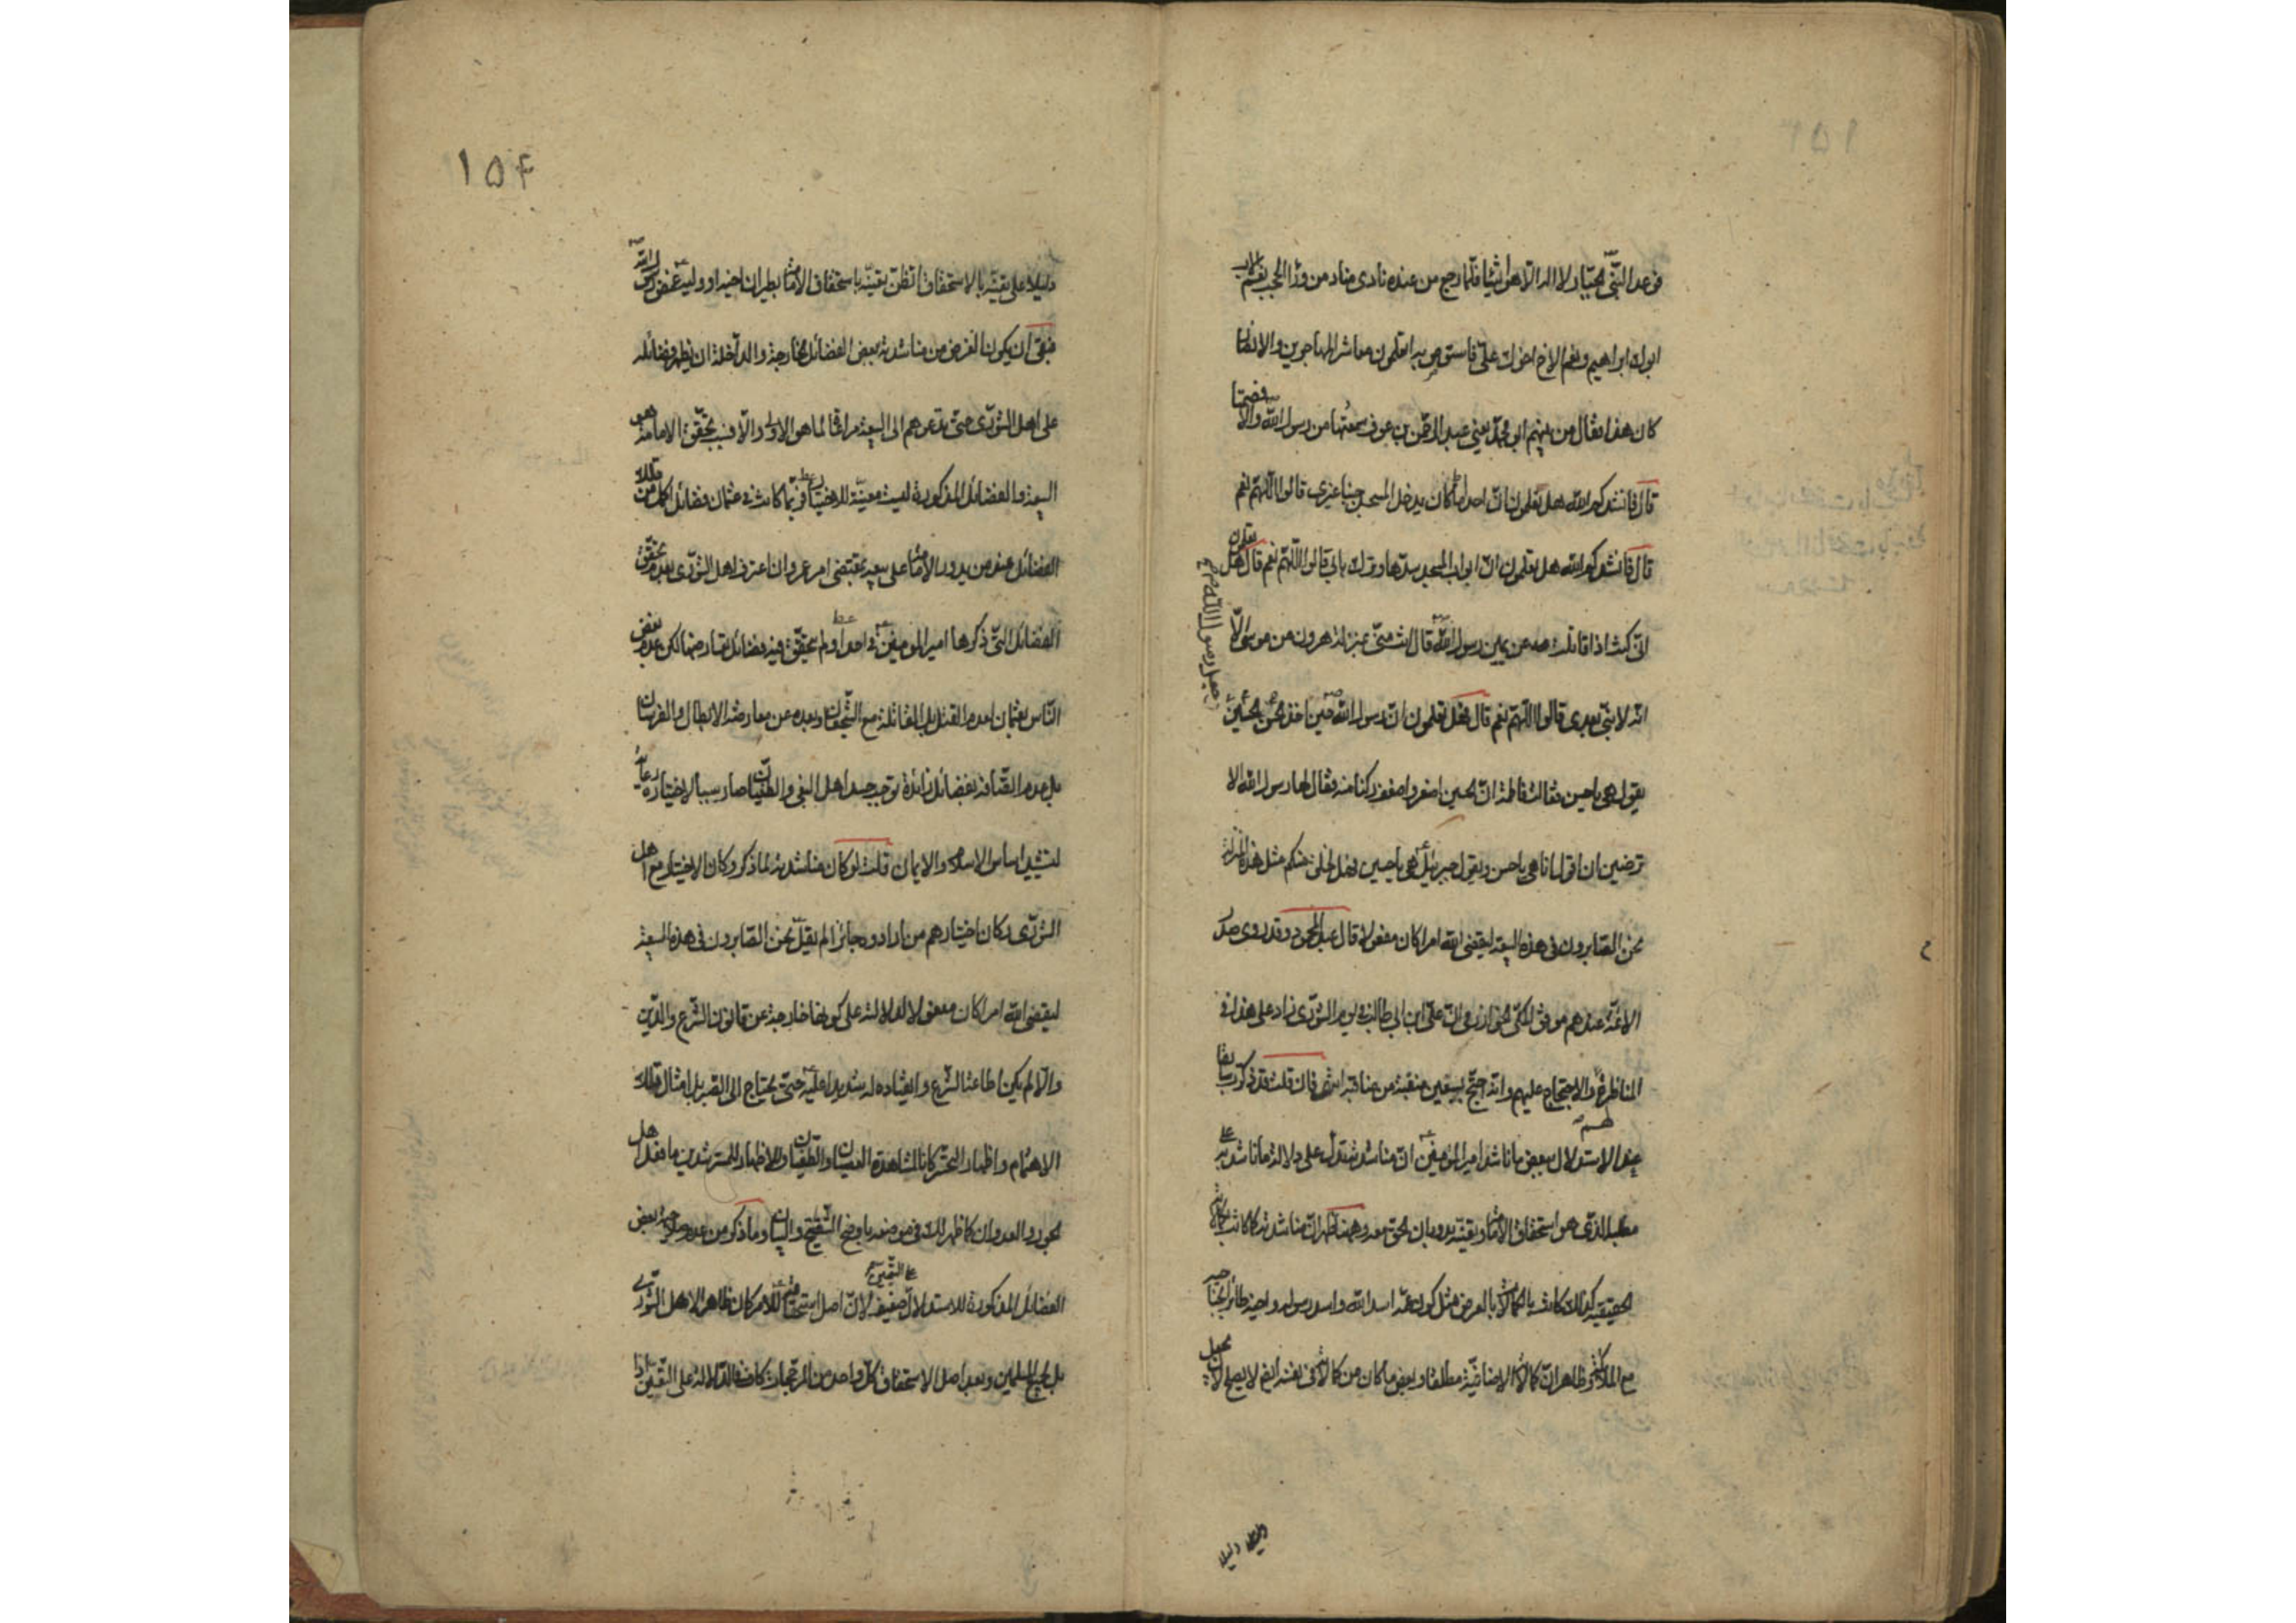 فوعد النبي الجبار لا اله الا هو اشياء فلما رجع من عنده نادى مناد من وراء الحجب نعم الاب
ابوك ابراهيم ونعم الاخ اخوك علي فاستوص به اتعلمون معاشر المهاجرين والانصار
كان هذا فقال من بينهم ابو محمد يعني عبد الرحمن بن عوف سمعتها من رسول الله والا فصمتا
قال فانشدكم الله هل تعلمون ان احدا كان يدخل المسجد جنبا غيري قالوا اللهم نعم
قال فانشدكم الله هل تعلمون ان ابواب المسجد سدها وترك بابي قالوا اللهم نعم قال هل تعلمون
اني كنت اذا قاتلت عن يمين رسول الله قال انت مني بمنزلة هرون من موسى الا
انه لا نبي بعدي قالوا اللهم نعم قال فهل تعلمون ان رسول الله حين اخذ الحسن والحسين جعل رسول الله
يقول هي يا حسن فقالت فاطمة ان الحسين اصغر واضعف ركنا منه فقال لها رسول الله الا
ترضين ان اقول انا هي يا حسن ويقول جبرئيل هي يا حسين فهل لخلق منكم مثل هذه المنزلة
نحن الصابرون في هذه البيعة ليقضي الله امرا كان مفعولا قال عبد المحمود وقد روى صدر
الائمة عندهم موفق المكي الخوارزمي ان علي ابن ابي طالب في يوم الشورى زاد على هذا في
المناظرة والاحتجاج عليهم وانه احتج بسبعين منقبة من مناقبه انتهى فان قلت قد ذكرت سابقا
عند الاستدلال ببعض ما ناشد امير المؤمنين ان مناشدته تدل على دلالة ما ناشد به على
مطلبه الذي هو استحقاق الامامة وتعينه بدوران الحق معه وههنا ظهر ان مناشدته كما كانت بكمالاته
الحقيقية كذلك كانت بالكمالات بالعرض مثل كون عمه اسد الله واسد رسوله واخيه طائرا بجناحيه
مع الملائكة وظاهر ان كمالات الاضافية مطلقا وبعض ما كان من كمالات في نفسه ايضا لا يصلح لان يجعل
والفضة دليلا
١٥٤
دليلا على تعينه بالاستحقاق اتظن تعينه باستحقاق الامامة بطيران اخيه او وليه غمض رسول الله
فبقي ان يكون الغرض من مناشدته ببعض الفضائل الخارجة والداخلة ان يظهر فضائله
على اهل الشورى حتى تدعوهم الى البيعة مراعاة لما هو الاولى والا فسبب تحقق الامامة هو
البيعة والفضائل المذكورة ليست معينة للاختيار فربما كانت في عثمان فضائل اكمل من تلك
الفضائل عند من يدور الامامة على بيعته بمقتضى امر عمر وان اعترف اهل الشورى بعدم تحقق
الفضائل التي ذكرها امير المؤمنين في احد او لم يتحقق فيه فضائل تعارضها لكن عدم بغض
الناس بعثمان لعدم القتل بل المقاتلة مع الشجعان وبعده عن معارضة الابطال والفرسان
بل عدم اتصافه بفضائل زائدة توجب حسد اهل البغي والطغيان صار سببا لاختياره رعاية
لتشييد اساس الاسلام والايمان قلت لو كان مناشدته لما ذكر وكان الاختيار مع اهل
الشورى وكان اختيارهم من ارادوه جائزا لم يقل نحن الصابرون في هذه البيعة
ليقضي الله امرا كان مفعولا لدلالته على كونها خارجة عن قانون الشرع والدين
والا لم يكن اطاعة الشرع وانقياده له شديدا عليه حتى يحتاج الى الصبر بل امثال تلك
الاهتمام واظهار التحسر كانا لمشاهدة العصيان والطغيان وللاظهار للمسترشدين ما فعل اهل
الجور والعدوان كما ظهر الك في موضعه باوضح التنقيح والبيان وما ذكر من عدم صلاحية بعض
الفضائل المذكورة للاستدلال على التعيين ضعيف لان اصل استحقاقه للامر كان ظاهرا لاهل الشورى
بل لجميع المسلمين وبعد اصل الاستحقاق كل واحد من المرجحات كاف في الدلالة على التعيين